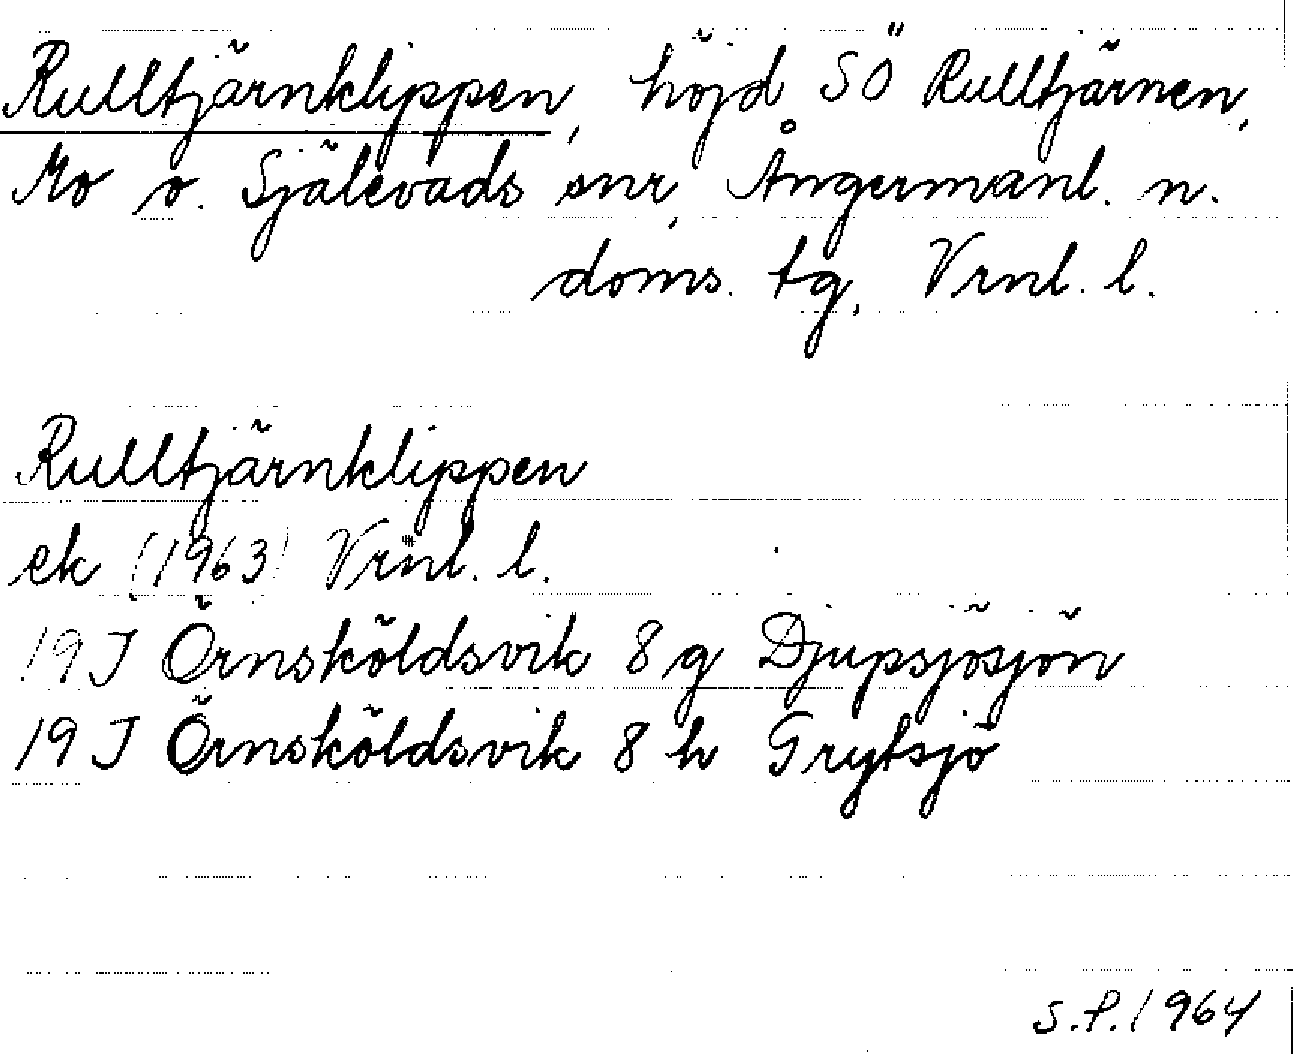 Rulltjärnklippen, höjd SÖ Rulltjärnen,
Mo o. Själevads snr, Ångermanl. n.
doms. tg, Vrnl. l.
Rulltjärnklippen
ek (1963) Vrnl. l.
19J Örnsköldsvik 8 g Djupsjösjön
19 J Örnsköldsvik 8 h Grytsjö
S.P. 1964